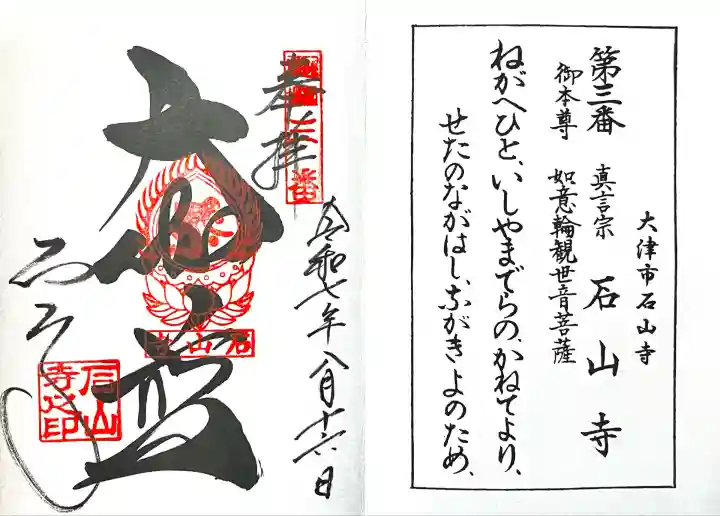 大津市石山寺
第三番 真言宗 石山寺
御本尊 如意輪観世音菩薩
ねがへひと、いしやまでらの、かねてより、
せたのながはし、ながきよのため、
奉拝
令和七年八月十六日
大伽藍
石山寺
石山寺之印